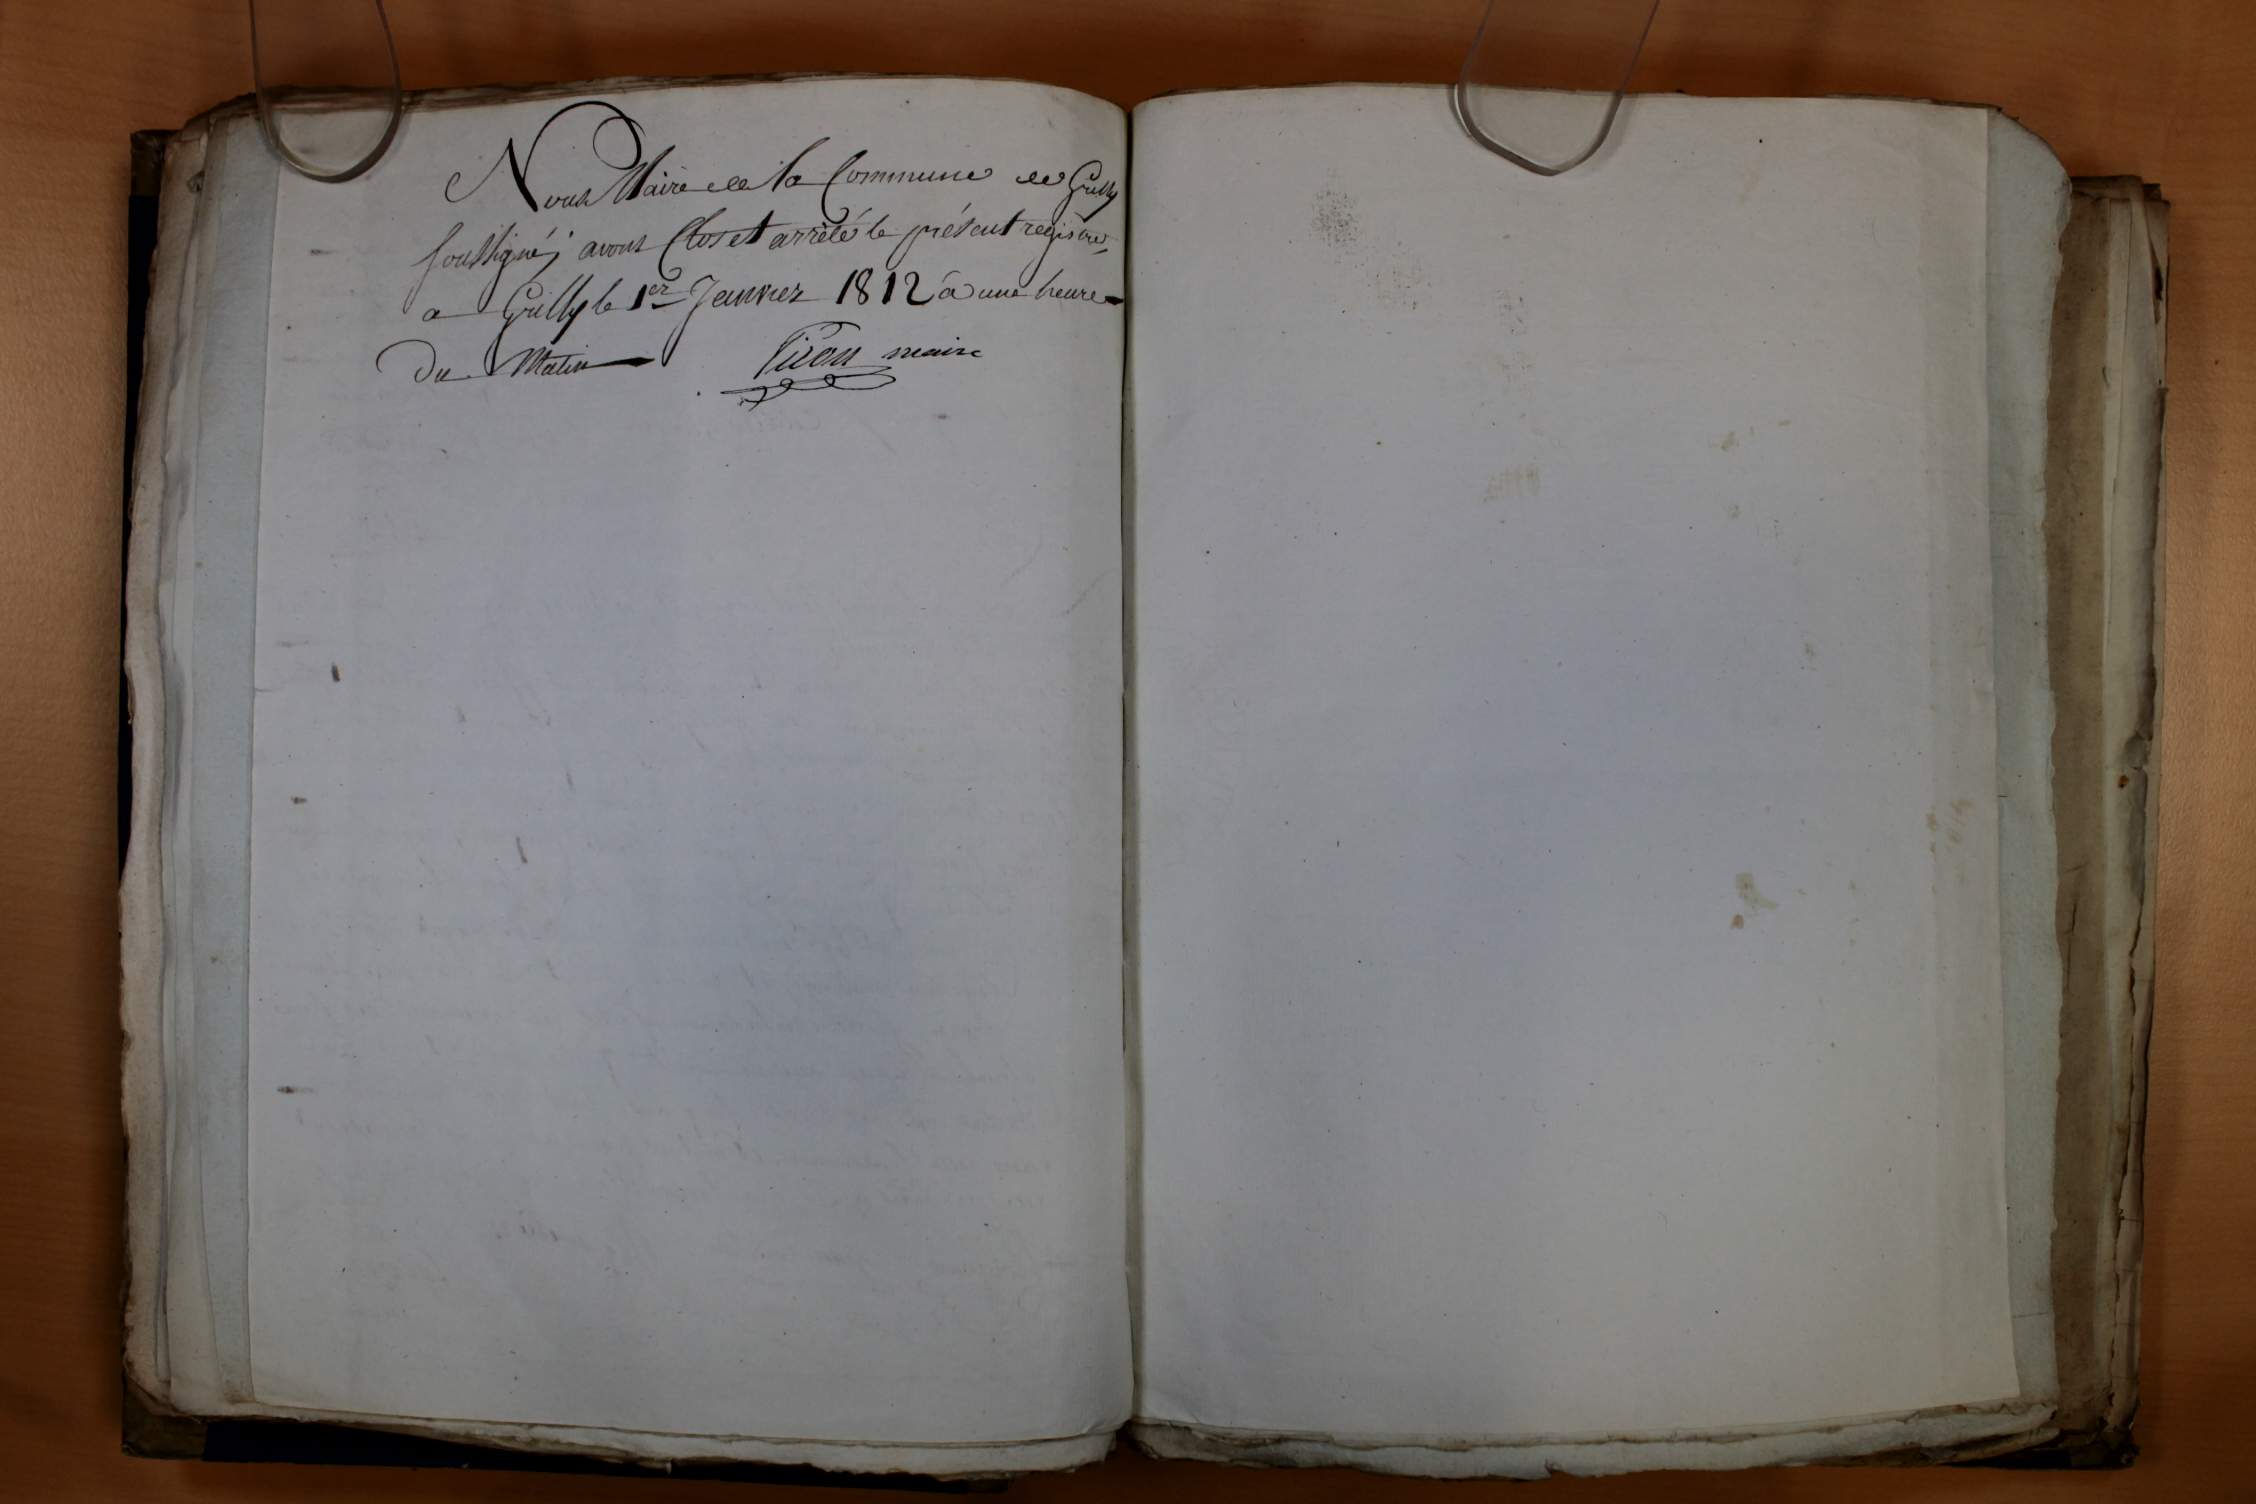 Nous Maire de la Commune de Grilly
soussigné, avons Clos et arrêté le présent registre,
a Grilly le 1er Janvier 1812 à une heure
du Matin Piron maire